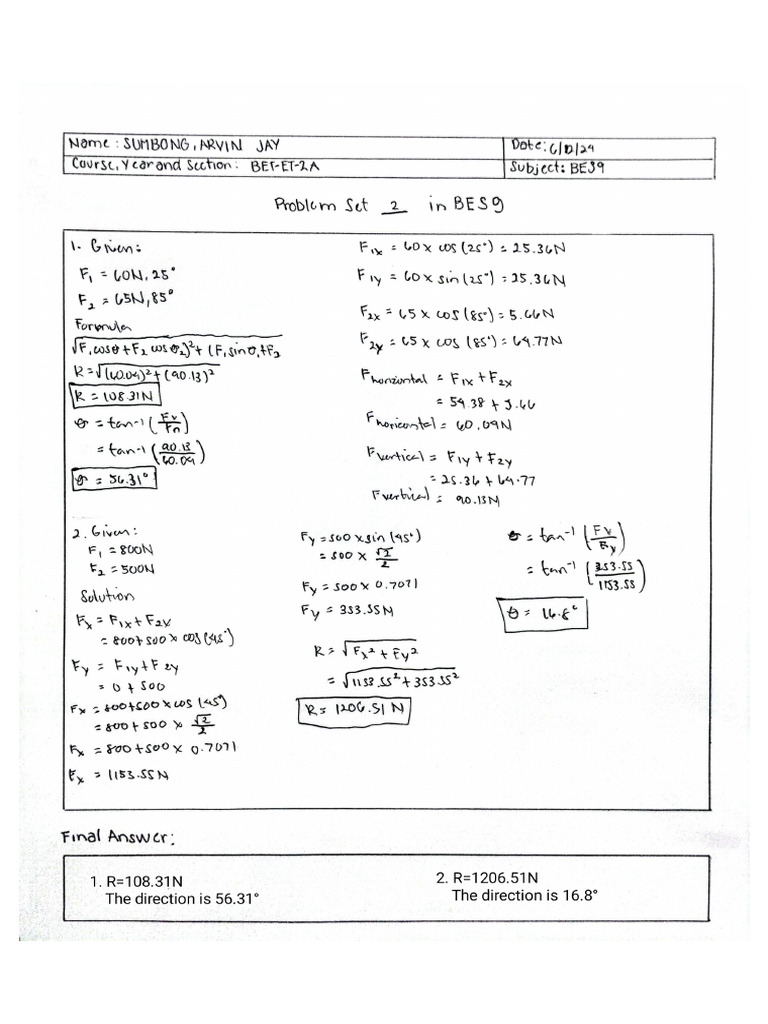 Name: SUMBONG, ARVIN JAY
Date: 6/10/24
Course, Year and Section: BET-ET-2A
Subject: BES9
Problem Set 2 in BES9
1. Given:
F₁ = 60N, 25°
F₂ = 65N, 85°
Formula
√(F, cosθ + F₂ cos θ₂)² + (F, sin θ, + F₂
R = √(60.04)² + (90.13)²
R = 108.31N
θ = tan⁻¹ (Fv/Fn)
= tan⁻¹ (90.13/60.04)
θ = 56.31°
F₁ₓ = 60 x cos (25°) = 25.36N
F₁y = 60 x sin (25°) = 25.36N
F₂ₓ = 65 x cos (85°) = 5.66N
F₂y = 65 x cos (85°) = 64.77N
Fhorizontal = F₁ₓ + F₂ₓ
= 54.38 + 5.66
Fhorizontal = 60.04N
Fvertical = F₁y + F₂y
= 25.36 + 64.77
Fvertical = 90.13N
2. Given:
F₁ = 800N
F₂ = 500N
Solution
Fₓ = F₁ₓ + F₂ₓ
= 800 + 500 x cos (45°)
Fy = F₁y + F₂y
= 0 + 500
Fₓ = 800 + 500 x cos (45°)
= 800 + 500 x √2/2
Fₓ = 800 + 500 x 0.7071
Fₓ = 1153.55N
Fy = 500 x sin (45°)
= 500 x √2/2
Fy = 500 x 0.7071
Fy = 353.55N
R = √Fₓ² + Fy²
= √1153.55² + 353.55²
R = 1206.51 N
θ = tan⁻¹ (Fx/Ry)
= tan⁻¹ (353.55/1153.55)
θ = 16.8°
Final Answer:
1. R=108.31N
The direction is 56.31°
2. R=1206.51N
The direction is 16.8°